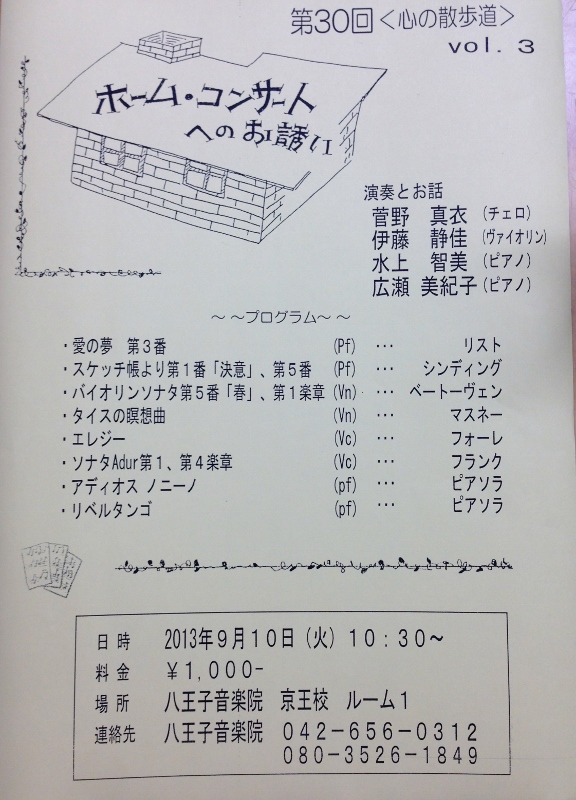 第30回＜心の散歩道＞
vol. 3
ホーム・コンサート
へのお誘い
演奏とお話
菅野 真衣(チェロ)
伊藤 静佳(ヴァイオリン)
水上 智美(ピアノ)
広瀬 美紀子(ピアノ)
～～プログラム～～
・愛の夢 第3番 (Pf) … リスト
・スケッチ帳より第1番「決意」、第5番 (Pf) … シンディング
・バイオリンソナタ第5番「春」、第1楽章 (Vn) … ベートーヴェン
・タイスの瞑想曲 (Vn) … マスネー
・エレジー (Vc) … フォーレ
・ソナタAdur第1、第4楽章 (Vc) … フランク
・アディオス ノニーノ (pf) … ピアソラ
・リベルタンゴ (pf) … ピアソラ
日時 2013年9月10日(火)10:30～
料金 ￥1,000-
場所 八王子音楽院 京王校 ルーム1
連絡先 八王子音楽院 042-656-0312
080-3526-1849